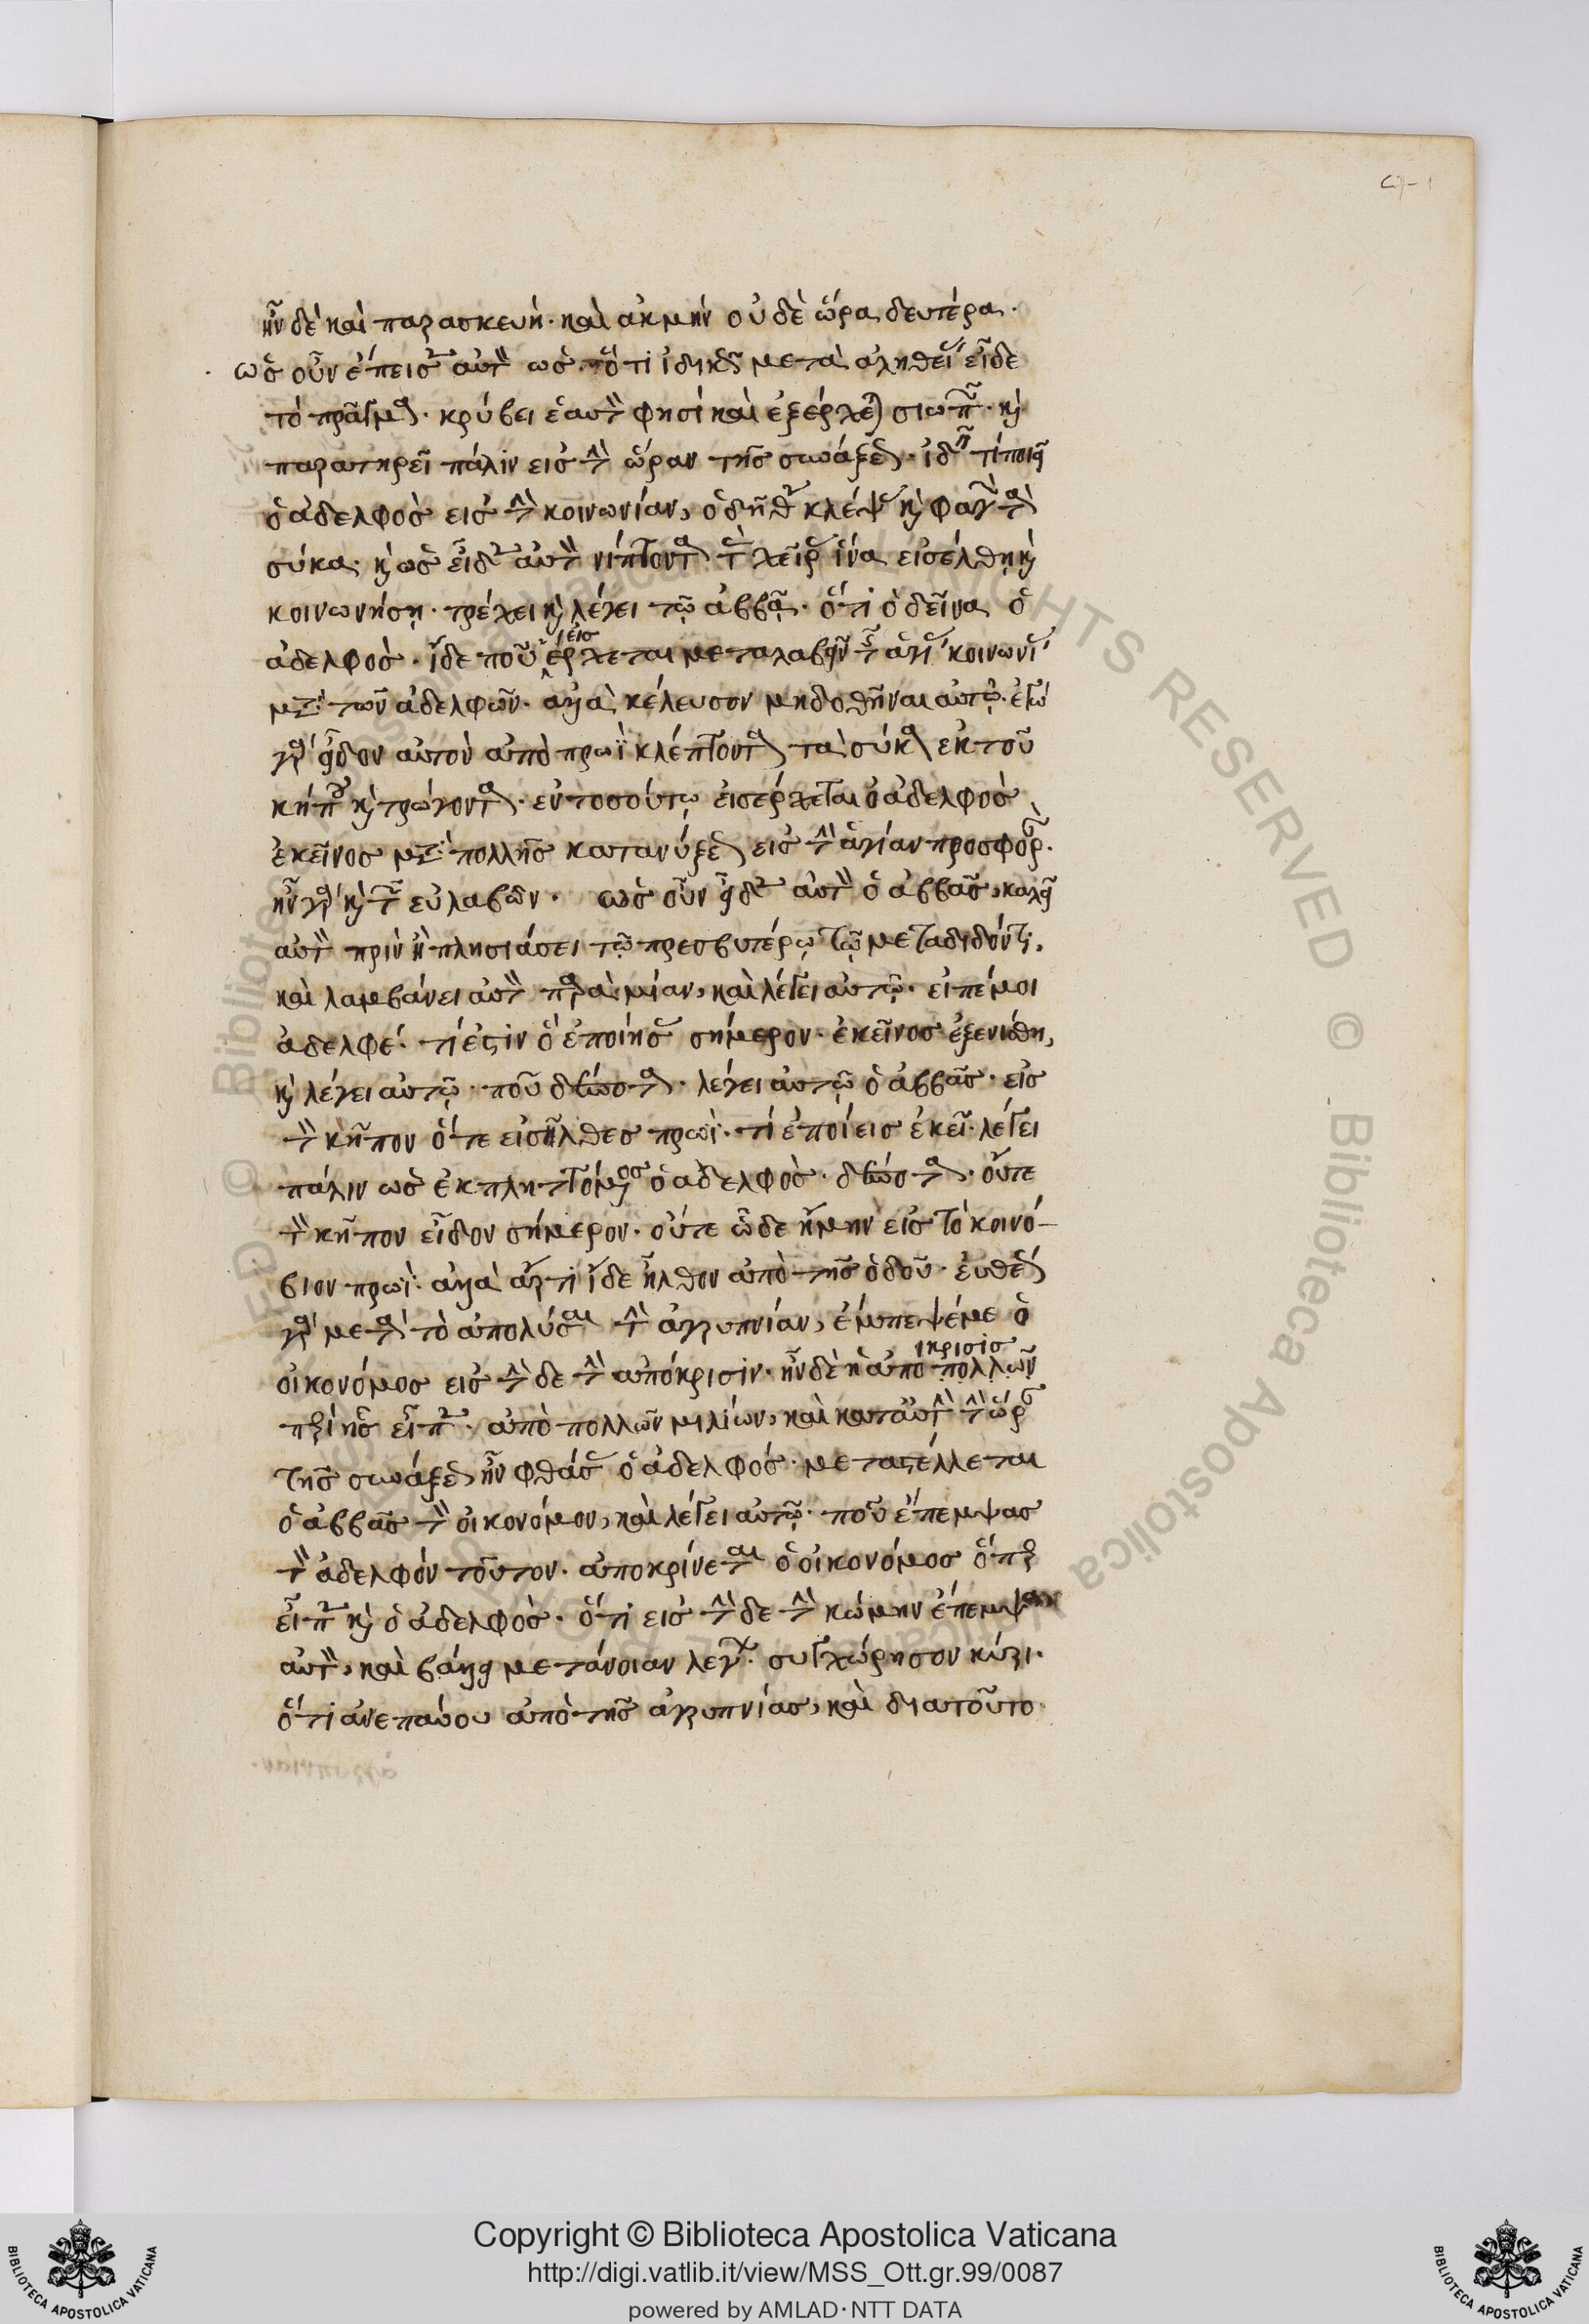 ἦν δὲ καὶ παρασκευή· καὶ ἀκμὴν οὐδὲ ὥρα δευτέρα·
ὡς οὖν ἔπεισεν αὐτὸν ὡς ὅτι ἰδικῶς μετὰ ἀληθείας εἶδε
τὸ πρᾶγμα· κρύβει ἑαυτὸν φησὶ καὶ ἐξέρχεται σιωπῆ· κὶ
παρατηρεῖ πάλιν εἰς τὴν ὥραν τῆς συνάξεως· ἰδεῖν τί ποιεῖ
ὁ ἀδελφὸς εἰς τὴν κοινωνίαν, ὁ δῆθεν κλέψας κὶ φαγὼν τὰ
σύκα· κὶ ὡς εἶδεν αὐτὸν νίπτοντα τὰς χεῖρας ἵνα εἰσέλθη κὶ
κοινωνήση· τρέχει κὶ λέγει τῶ ἀββᾶ· ὅτι ὁ δεῖνα ὁ
ἀδελφὸς· ἴδε ποῦ εἰσέρχεται μεταλαβεῖν τῆς ἁγίας κοινωνίας
μετὰ τῶν ἀδελφῶν· ἀλλὰ κέλευσον μὴ δοθῆναι αὐτῶ· ἐγὼ
γὰρ εἶδον αὐτὸν ἀπὸ πρωῒ κλέπτοντα τὰ σύκα ἐκ τοῦ
κήπου κὶ τρώγοντα· ἐν τοσούτω εἰσέρχεται ὁ ἀδελφὸς
ἐκεῖνος μετὰ πολλῆς κατανύξεως εἰς τὴν ἁγίαν προσφοράν·
ἦν γὰρ κὶ τῶν εὐλαβῶν· ὡς οὖν εἶδεν αὐτὸν ὁ ἀββᾶς, καλεῖ
αὐτὸν πρὶν ἢ πλησιάσει τῶ πρεσβυτέρω τῶ μεταδιδόντι,
καὶ λαμβάνει αὐτὸν παρὰ μίαν, καὶ λέγει αὐτῶ· εἰπέ μοι
ἀδελφέ· τί ἐστιν ὃ ἐποίησας σήμερον· ἐκεῖνος ἐξενίσθη,
κὶ λέγει αὐτῶ· ποῦ δέσποτα· λέγει αὐτῶ ὁ ἀββᾶς· εἰς
τὸν κῆπον ὅτε εἰσῆλθες πρωῒ· τί ἐποίεις ἐκεῖ· λέγει
πάλιν ὡς ἐκπληττόμενος ὁ ἀδελφὸς· δέσποτα· οὔτε
τὸν κῆπον εἶδον σήμερον· οὔτε ὧδε ἤμην εἰς τὸ κοινό-
βιον πρωῒ· ἀλλὰ ἄρτι ἴδε ἦλθον ἀπὸ τῆς ὁδοῦ· εὐθέως
γὰρ μετὰ τὸ ἀπολύσαι τὴν ἀγρυπνίαν, ἔμπεψέ με ὁ
οἰκονόμος εἰς τήν δε τὴν ἀπόκρισιν· ἦν δὲ ἡ ἀπόκρισις
περὶ ἧς εἶπεν· ἀπὸ πολλῶν μιλίων, καὶ κατ' αὐτὴν τὴν ὥραν
τῆς συνάξεως ἦν φθάσας ὁ ἀδελφός· μεταστέλλεται
ὁ ἀββᾶς τὸν οἰκονόμον, καὶ λέγει αὐτῶ· ποῦ ἔπεμψας
τὸν ἀδελφὸν τοῦτον· ἀποκρίνεται ὁ οἰκονόμος ὅπερ
εἶπεν κὶ ὁ ἀδελφὸς· ὅτι εἰς τήν δε τὴν κώμην ἔπεμψα
αὐτὸν, καὶ βάλλει μετάνοιαν λέγων· συγχώρησον κύρι·
ὅτι ἀνεπαύου ἀπὸ τῆς ἀγρυπνίας, καὶ διατοῦτο
Copyright © Biblioteca Apostolica Vaticana
http://digi.vatlib.it/view/MSS_Ott.gr.99/0087
powered by AMLAD·NTT DATA